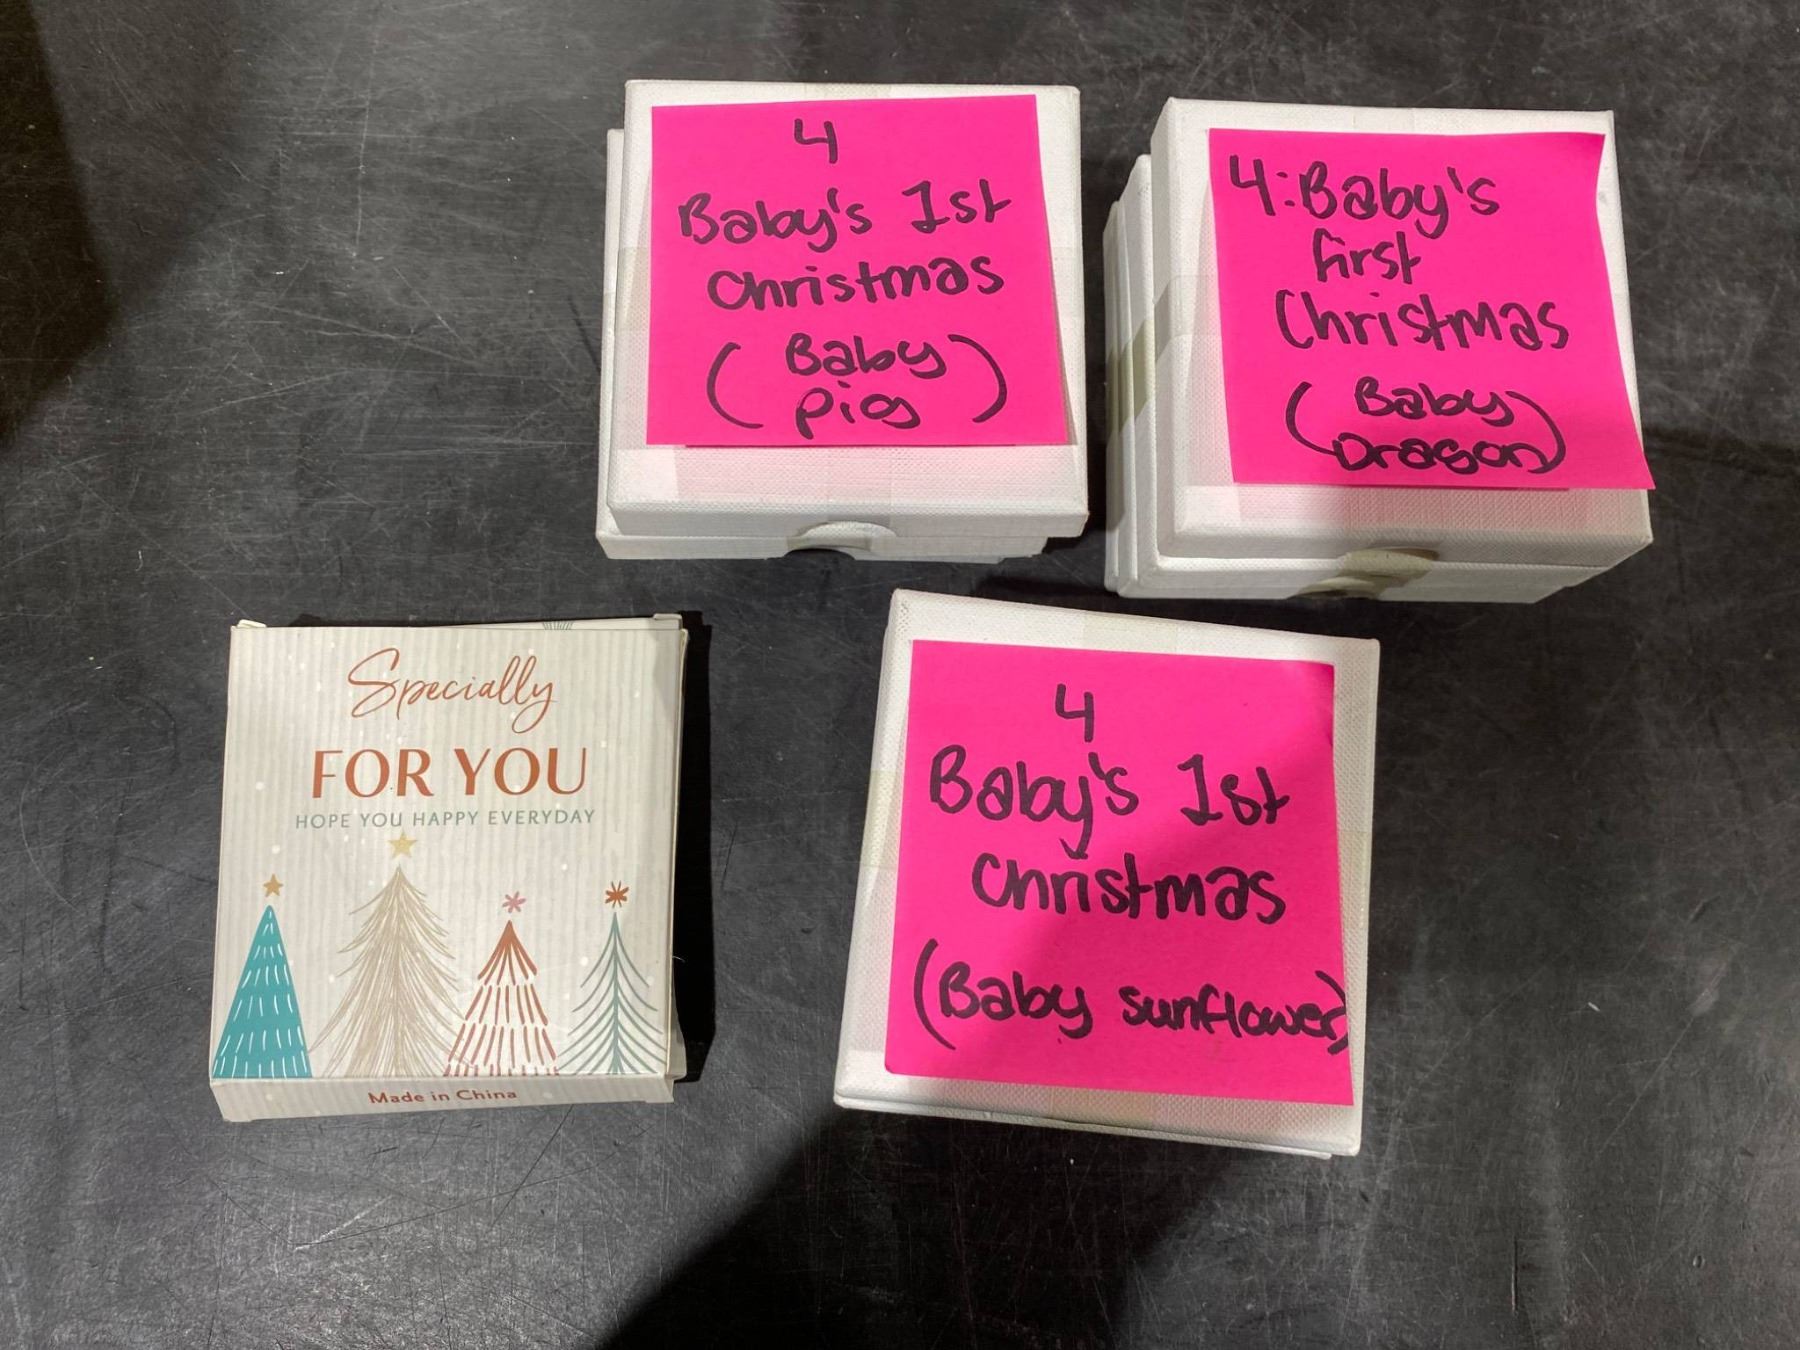 4
Baby's 1st
Christmas
(Baby
pig)
4:Baby's
first
Christmas
(Baby
Dragon)
Specially
FOR YOU
HOPE YOU HAPPY EVERYDAY
Made in China
4
Baby's 1st
Christmas
(Baby sunflower)